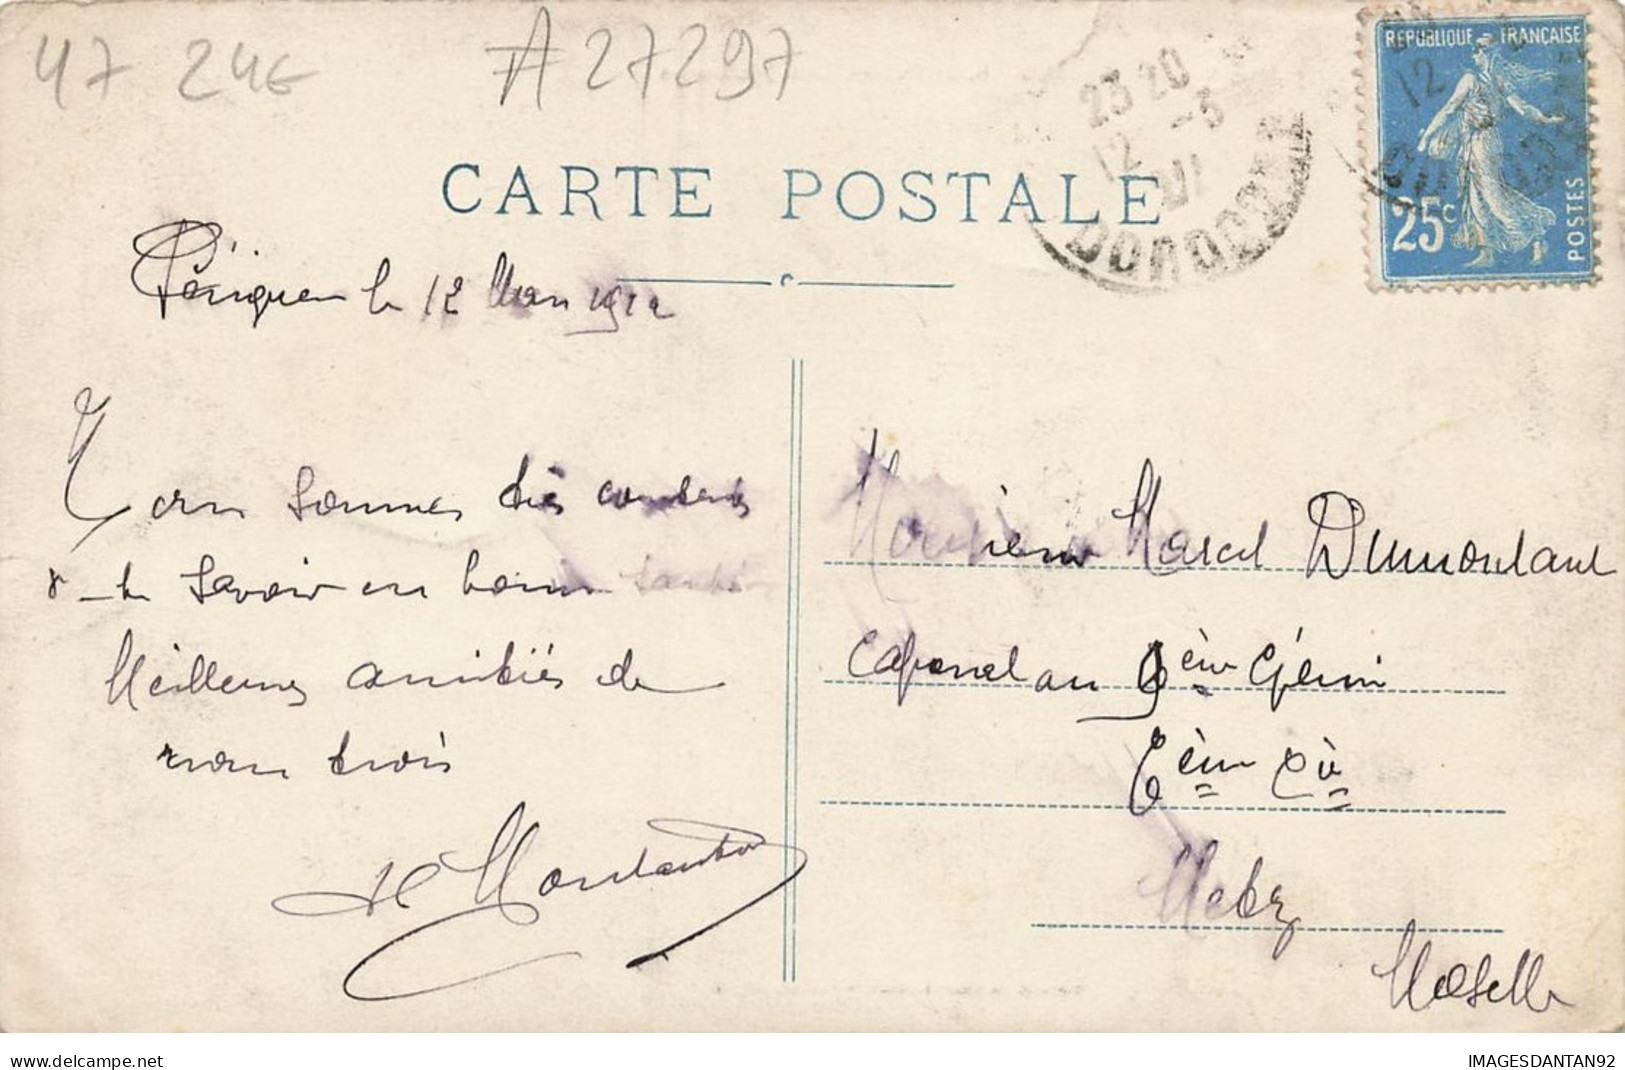 47 24E
A 27297
CARTE POSTALE
23 20
12 -3
DORDOGNE
REPUBLIQUE FRANÇAISE
25c
POSTES
le 12 Mars
sommes très contents
savoir en bonne santé
Meilleures amitiés de
nous trois
Monsieur Marcel
Caporal au 9ème Génie
6ème Cie
Metz
Moselle
www.delcampe.net
IMAGESDANTAN92